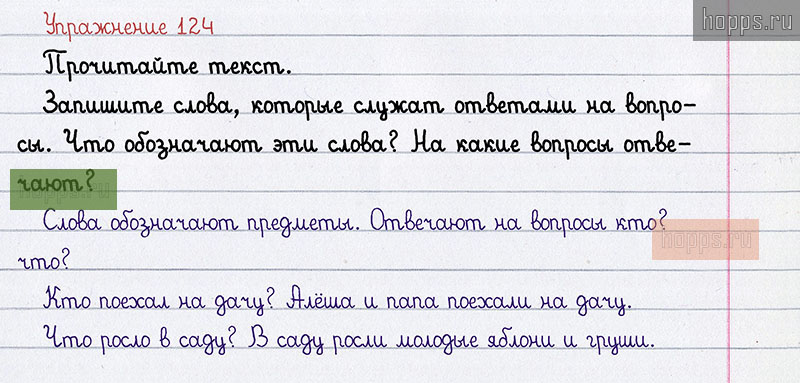 Упражнение 124
hopps.ru
Прочитайте текст.
Запишите слова, которые служат ответами на вопро-
сы. Что обозначают эти слова? На какие вопросы отве-
чают?
Слова обозначают предметы. Отвечают на вопросы кто?
hopps.ru
что?
Кто поехал на дачу? Алёша и папа поехали на дачу.
Что росло в саду? В саду росли молодые яблони и груши.